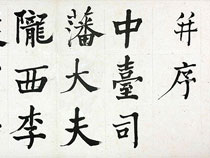 并序
中臺司
藩大夫
隴西李